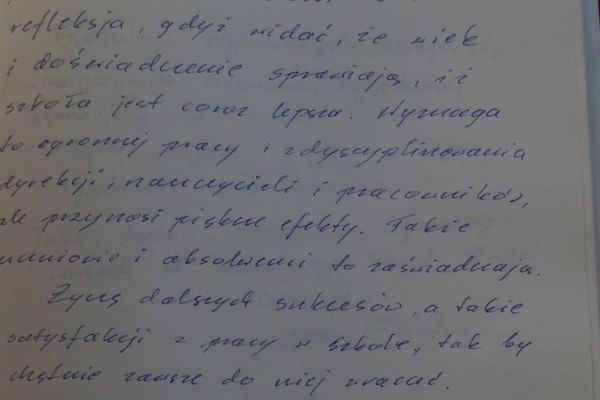 refleksja, gdyż widać, że wiek
i doświadczenie sprawiają, iż
szkoła jest coraz lepsza. Wymaga
to ogromnej pracy i zdyscyplinowania
dyrekcji, nauczycieli i pracowników,
ale przynosi piękne efekty. Także
uczniowie i absolwenci to zaświadczają.
Życzę dalszych sukcesów, a także
satysfakcji z pracy w szkole, tak by
chętnie zawsze do niej wracać.